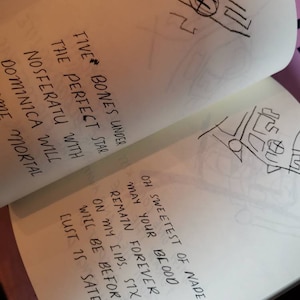 FIVE BONES UNDER
THE PERFECT STAR
NOSFERATU WITH
DOMINICA WILL
MORTAL
OH SWEETEST OF
MAY YOUR BLOOD
REMAIN FOREVER
ON MY LIPS. SIX
WILL BE BEFOR
LUST IS SATE